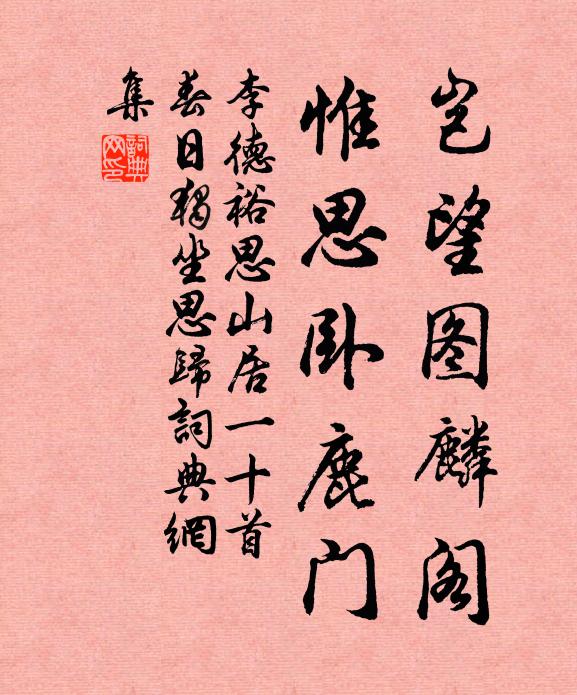 岂望图麟阁
惟思卧鹿门
李德裕思山居一十首
春日獨坐思歸詞典網
集
詞典网印